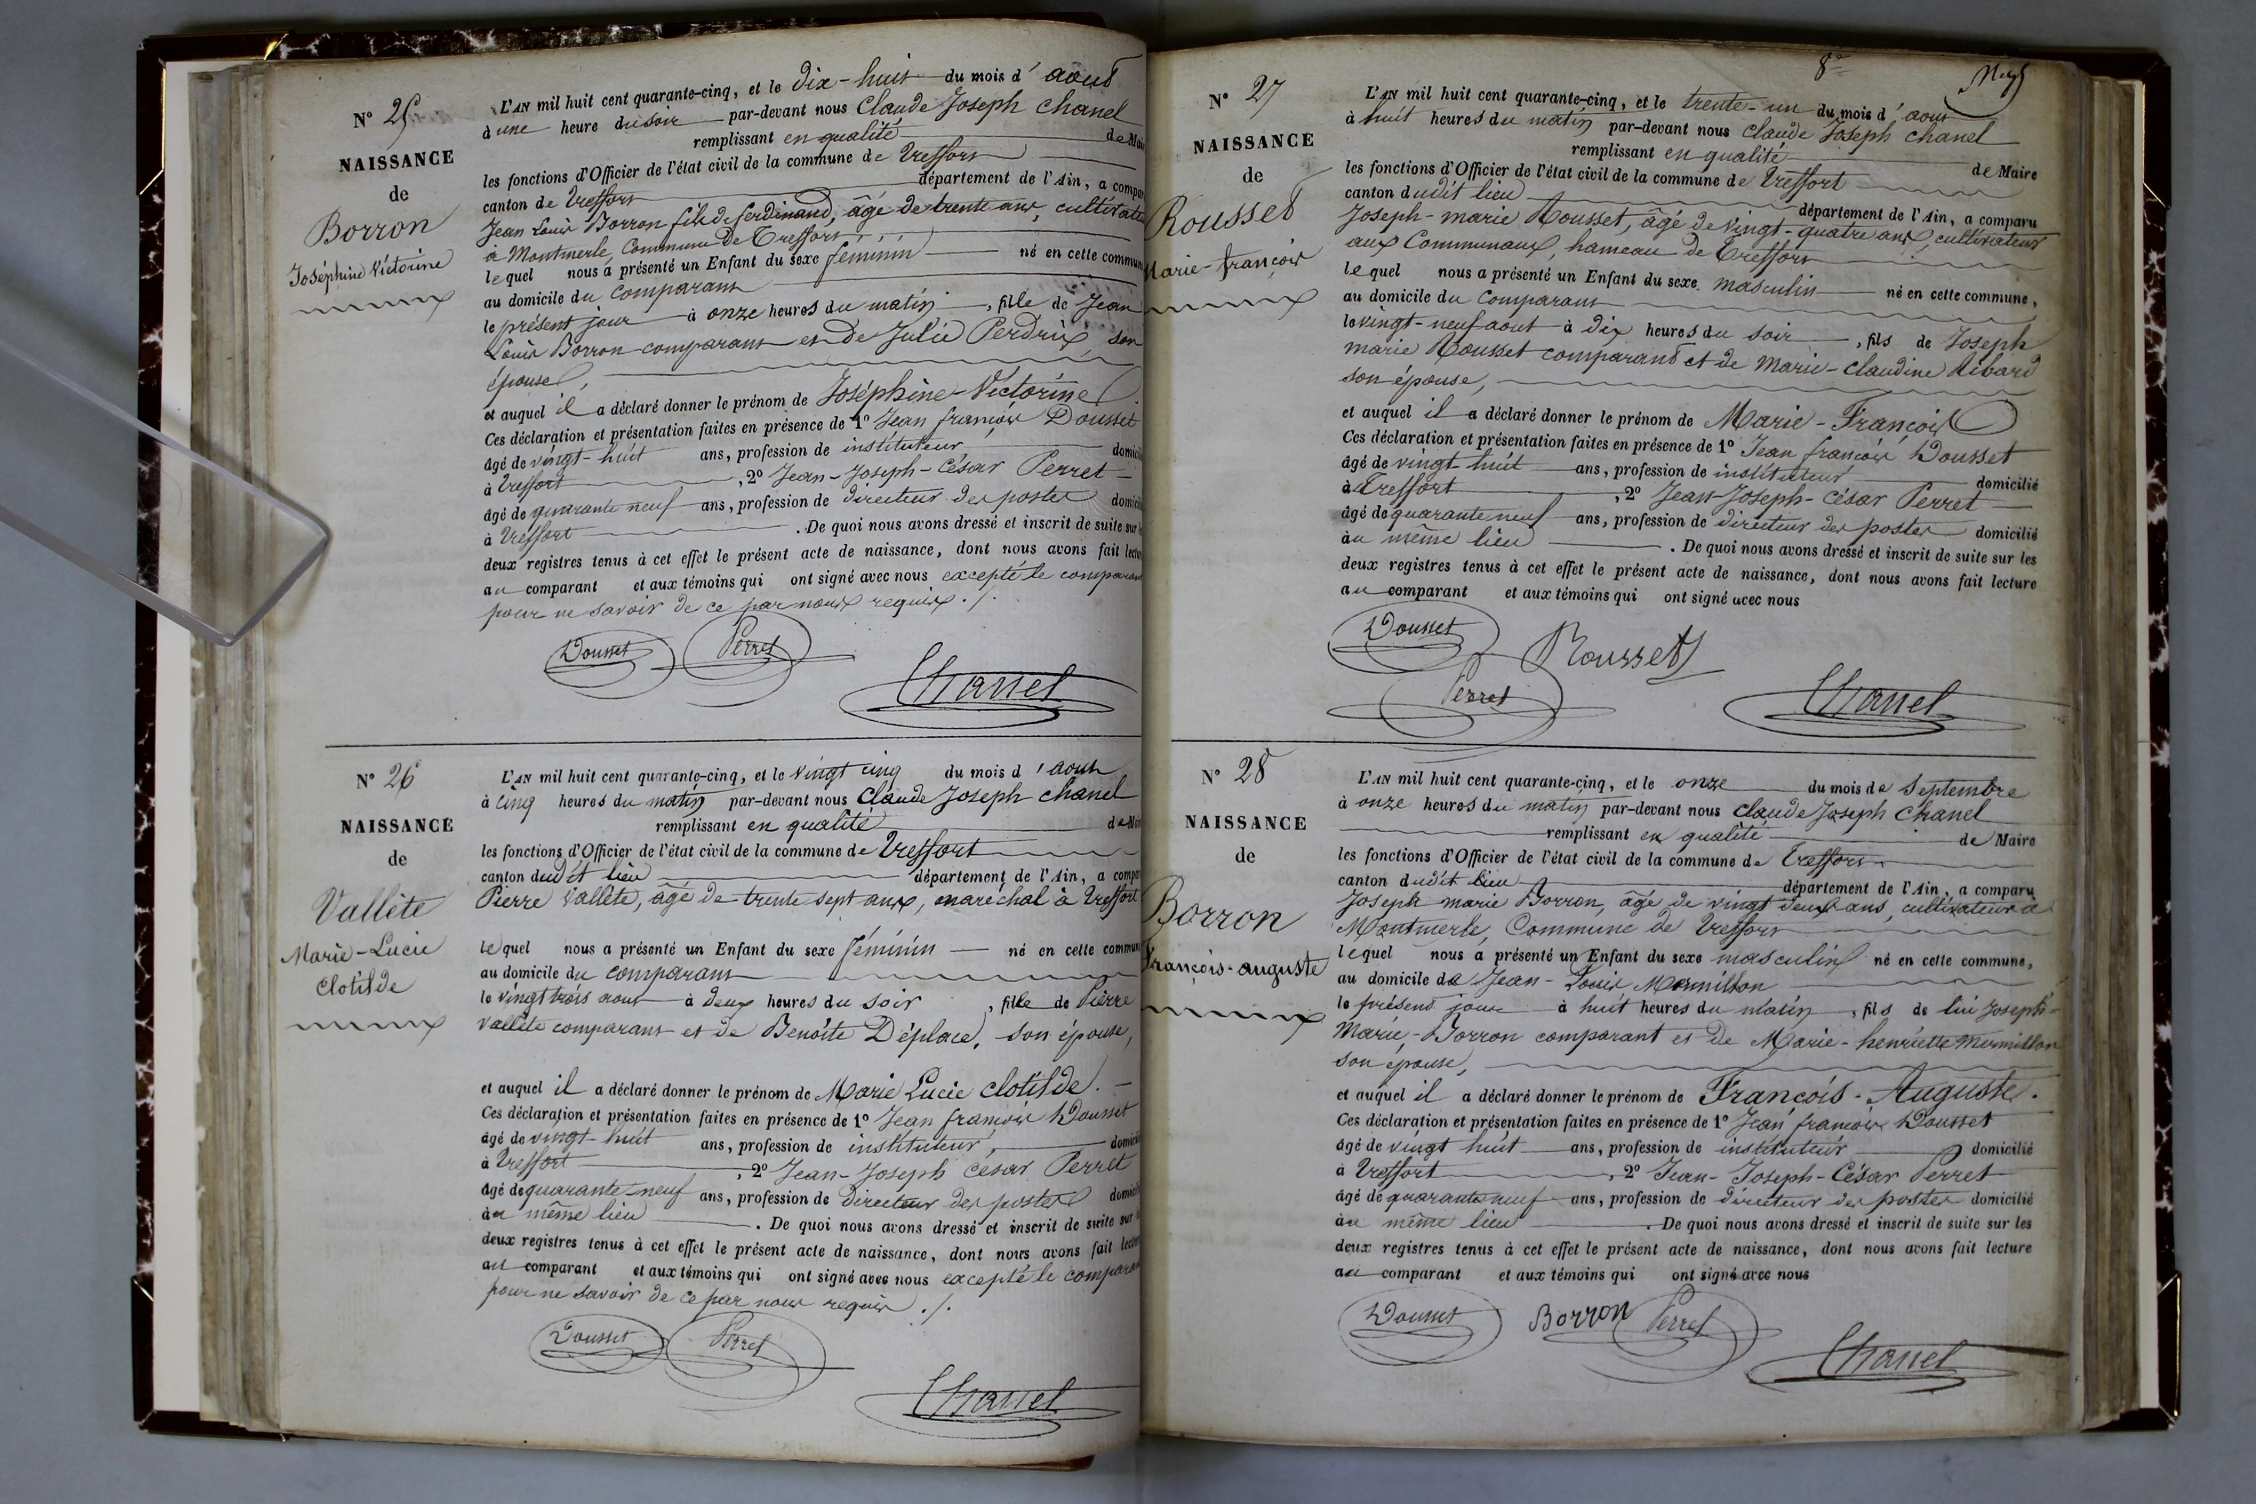 N° 25
NAISSANCE
de
Borron
Joséphine Victorine
L'AN mil huit cent quarante-cinq, et le dix-huit du mois d'aout
à une heure du soir par-devant nous Claude Joseph Chanel
remplissant en qualité de Mai
les fonctions d'Officier de l'état civil de la commune de Treffort
canton de Treffort département de l'Ain, a compar
Jean Louis Borron fils de ferdinand, âgé de trente ans, cultivate
à Montmerle, Commune De Treffort
lequel nous a présenté un Enfant du sexe féminin né en cette commun
au domicile du comparant
le présent jour à onze heures du matin, fille de Jean
Louis Borron comparant et de Julie Perdrix, son
épouse,
et auquel il a déclaré donner le prénom de Joséphine-Victorine
Ces déclaration et présentation faites en présence de 1° Jean françois Dousset
âgé de vingt-huit ans, profession de instituteur domici
à Treffort, 2° Jean-Joseph-César Perret
âgé de quarante neuf ans, profession de directeur des postes domici
à Treffort. De quoi nous avons dressé et inscrit de suite sur le
deux registres tenus à cet effet le présent acte de naissance, dont nous avons fait lectu
au comparant et aux témoins qui ont signé avec nous excepté le comparant
pour ne savoir de ce par nous requis ./.
Dousset Perret
Chanel
N° 26
NAISSANCE
de
Vallète
Marie-Lucie
Clotilde
L'AN mil huit cent quarante-cinq, et le vingt cinq du mois d'aout
à cinq heures du matin par-devant nous Claude Joseph Chanel
remplissant en qualité de Mai
les fonctions d'Officier de l'état civil de la commune de Treffort
canton dudit lieu département de l'Ain, a compa
Pierre Vallète, âgé de trente sept ans, maréchal à Treffort
lequel nous a présenté un Enfant du sexe féminin né en cette commun
au domicile du comparant
le vingt trois aout à deux heures du soir, fille de Pierre
Vallète comparant et de Benoite Déplace, son épouse,
et auquel il a déclaré donner le prénom de Marie Lucie Clotilde.
Ces déclaration et présentation faites en présence de 1° Jean françois Dousset
âgé de vingt-huit ans, profession de instituteur, domici
à Treffort, 2° Jean-Joseph César Perret
âgé de quarante-neuf ans, profession de directeur des postes domici
à au même lieu. De quoi nous avons dressé et inscrit de suite sur l
deux registres tenus à cet effet le présent acte de naissance, dont nous avons fait lectur
au comparant et aux témoins qui ont signé avec nous excepté le comparan
pour ne savoir de ce par nous requis ./.
Dousset Perret
Chanel
8e
N° 27
NAISSANCE
de
Rousset
Marie-françois
L'AN mil huit cent quarante-cinq, et le trente-un du mois d'aout
à huit heures du matin par-devant nous Claude Joseph Chanel
remplissant en qualité de Maire
les fonctions d'Officier de l'état civil de la commune de Treffort
canton dudit lieu département de l'Ain, a comparu
Joseph-marie Rousset, âgé de vingt-quatre ans, cultivateur
aux Communaux, hameau de Treffort
lequel nous a présenté un Enfant du sexe masculin né en cette commune,
au domicile du comparant
le vingt-neuf aout à dix heures du soir, fils de Joseph
marie Rousset comparant et de Marie-Claudine Ribard
son épouse,
et auquel il a déclaré donner le prénom de Marie-François
Ces déclaration et présentation faites en présence de 1° Jean françois Dousset
âgé de vingt huit ans, profession de instituteur domicilié
à Treffort, 2° Jean-Joseph-César Perret
âgé de quarante neuf ans, profession de directeur des postes domicilié
à au même lieu. De quoi nous avons dressé et inscrit de suite sur les
deux registres tenus à cet effet le présent acte de naissance, dont nous avons fait lecture
au comparant et aux témoins qui ont signé avec nous
Dousset Rousset
Perret Chanel
N° 28
NAISSANCE
de
Borron
François-auguste
L'AN mil huit cent quarante-cinq, et le onze du mois de Septembre
à onze heures du matin par-devant nous Claude Joseph Chanel
remplissant en qualité de Maire
les fonctions d'Officier de l'état civil de la commune de Treffort
canton dudit lieu département de l'Ain, a comparu
Joseph marie Borron, âgé de vingt deux ans, cultivateur à
Montmerle, Commune de Treffort
lequel nous a présenté un Enfant du sexe masculin né en cette commune,
au domicile de Jean-Louis Mermillon
le présent jour à huit heures du matin, fils de lui Joseph-
Marie-Borron comparant et de Marie-henriette Mermillon
son épouse,
et auquel il a déclaré donner le prénom de François-Auguste.
Ces déclaration et présentation faites en présence de 1° Jean françois Dousset
âgé de vingt huit ans, profession de instituteur domicilié
à Treffort, 2° Jean-Joseph-César Perret
âgé de quarante neuf ans, profession de directeur des postes domicilié
à au même lieu. De quoi nous avons dressé et inscrit de suite sur les
deux registres tenus à cet effet le présent acte de naissance, dont nous avons fait lecture
au comparant et aux témoins qui ont signé avec nous
Dousset Borron Perret
Chanel